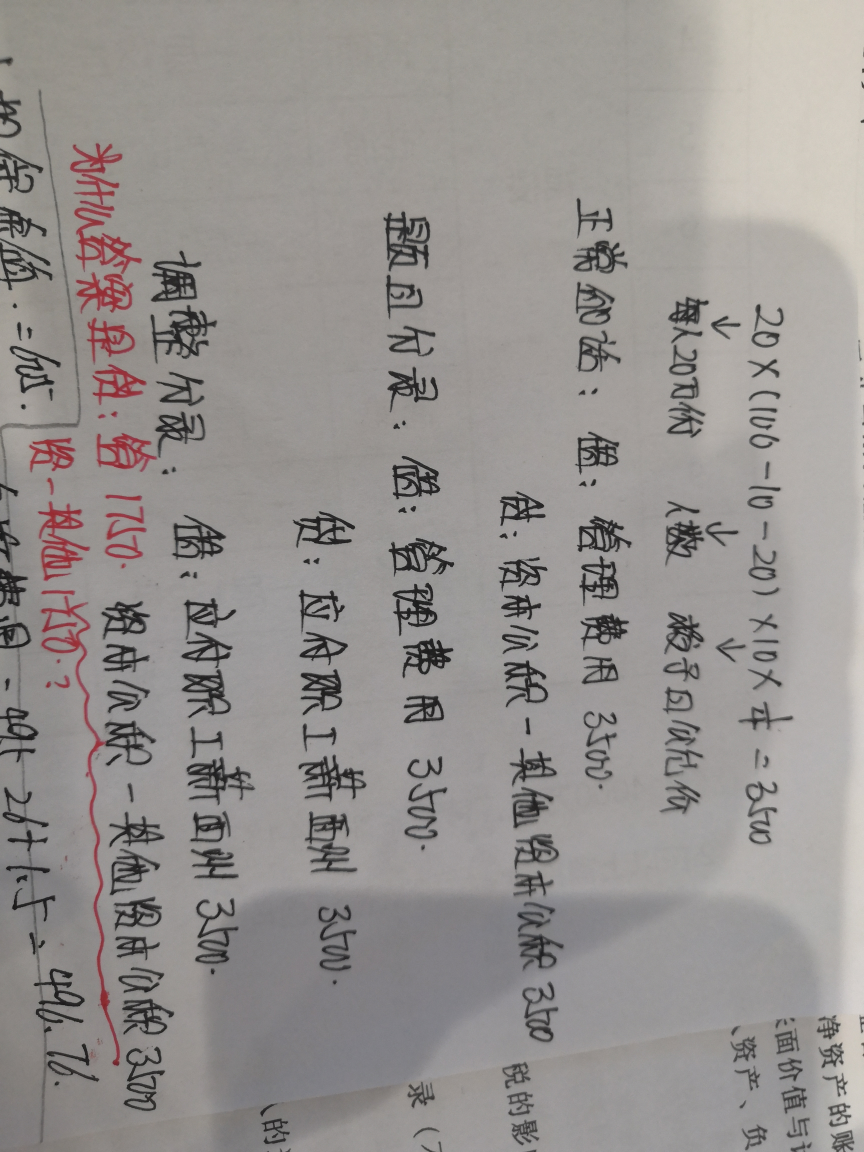 20×(100-10-20)×10×1/4=3500
每人20万份 人数 授予日公允价
正常做法：借：管理费用 3500.
贷：资本公积一其他资本公积 3500
题目分录：借：管理费用 3500.
贷：应付职工薪酬 3500.
调整分录：借：应付职工薪酬 3500.
资本公积一其他资本公积 3500
为什么答案是贷：管 1750.
资一其他 1750.？
=65.
49+26+1.5=496.76.
净资产的账
面价值与计
、资产、负
税的影
录（
人的